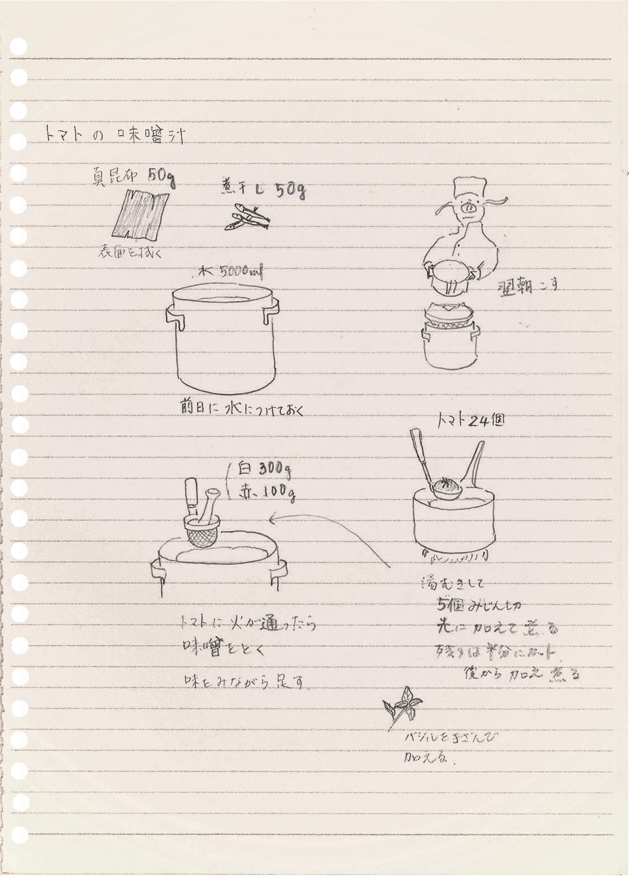 トマトの味噌汁
真昆布 50g
表面を拭く
煮干し 50g
水 5000ml
前日に水につけておく
翌朝こす
トマト24個
湯むきして
5個みじん切
先に加えて煮る
残りは半分にカット
後から加え煮る
白 300g
赤 100g
トマトに火が通ったら
味噌をとく
味をみながら足す.
バジルをきざんで
加える.